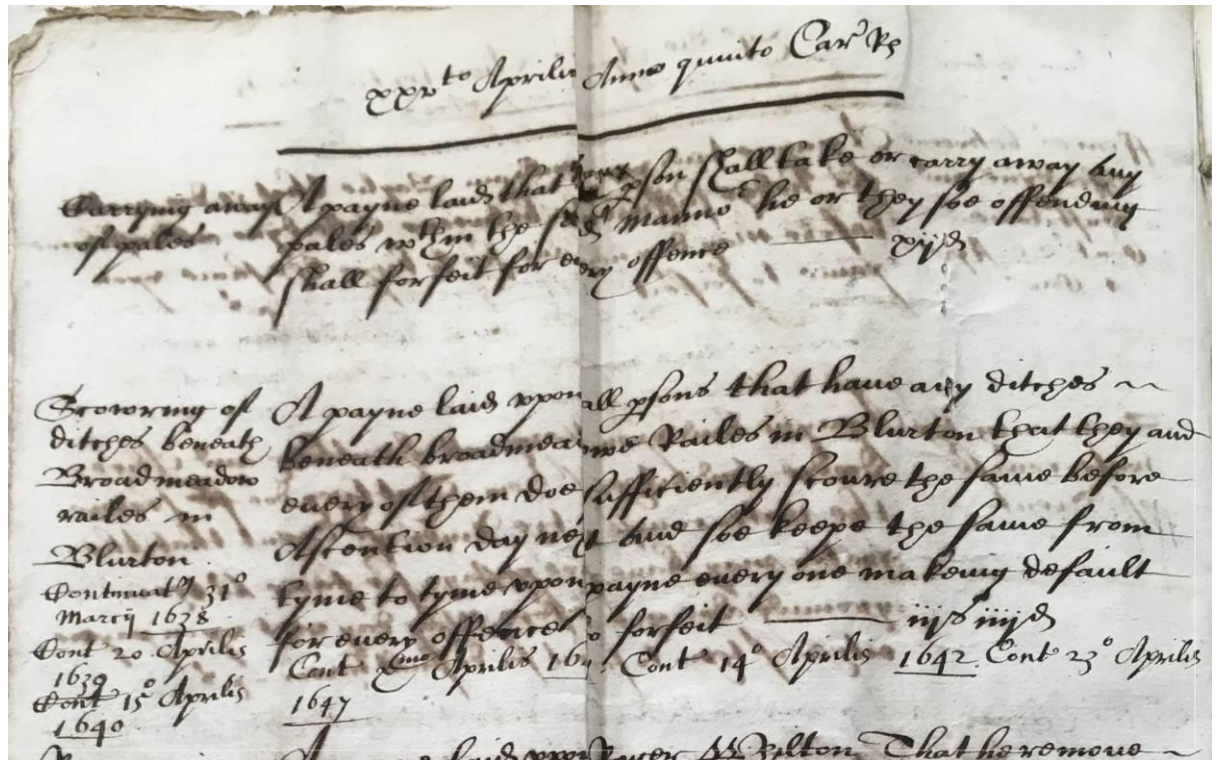 xxvto Aprilis Anno quinto Car Rs
Carrying away
of pales
A payne laid that if any pson shall take or carry away any
pales wthin the said Manno he or they soe offending
shall forfeit for every offence xijd
Scowring of
ditches beneath
Broadmeadow
railes in
Blurton
Continuat 31o
Marcij 1638
Cont 20 Aprilis
1639
Cont 15o Aprilis
1640
A payne laid vpon all psons that have any ditches
beneath broadmeadowe Railes in Blurton that they and
every of them doe sufficiently scoure the same before
Ascention day next And soe keepe the same from
tyme to tyme vpon payne every one makeing default
for every offence to forfeit iijs iiijd
Cont Aprilis Cont 14o Aprilis 1642 Cont 23o Aprilis
1647
laid vpon Bilton That he remove